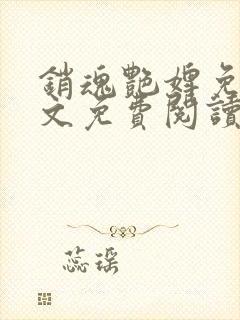 銷魂艷婢免
文免費閱讀
蕊瑤